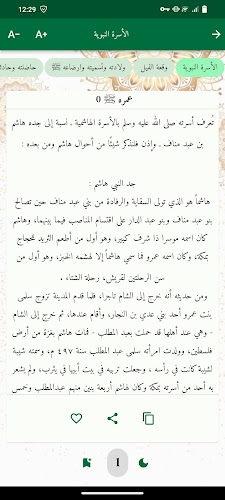 12:29
A- A+ الأسرة النبوية
الأسرة النبوية وقعة الفيل ولادته وتسميته وارضاعه ﷺ حاضنته وحادثة
عمره ﷺ 0
تُعرف أسرته صلى الله عليه وسلم بالأسرة الهاشمية . نسبة إلى جده هاشم
بن عبد مناف . وإذن فلنذكر شيئًا من أحوال هاشم ومن بعده :
جد النبي هاشم :
هاشماً هو الذي تولى السقاية والرفادة من بني عبد مناف حين تصالح
بنو عبد مناف وبنو عبد الدار على اقتسام المناصب فيما بينهما، وهاشم
كان اسمه موسرا ذا شرف كبير، وهو أول من أطعم الثريد للحجاج
بمكة، وكان اسمه عمرو فما سمي هاشماً إلا لهشمه الخبز، وهو أول من
سن الرحلتين لقريش، رحلة الشتاء .
ومن حديثه أنه خرج إلى الشام تاجرا، فلما قدم المدينة تزوج سلمى
بنت عمرو أحد بني عدي بن النجار، وأقام عندها، ثم خرج إلى الشام
- وهي عند أهلها قد حملت بعبد المطلب - فمات هاشم بغزة من أرض
فلسطين، وولدت امرأته سلمى عبد المطلب سنة ٤٩٧ م، وسمته شيبة
لشيبة كانت في رأسه ، وجعلت تربيه في بيت أبيها في يثرب، ولم يشعر
به أحد من أسرته بمكة وكان لهاشم أربعة بنين منهم عبدالمطلب وخمس
1